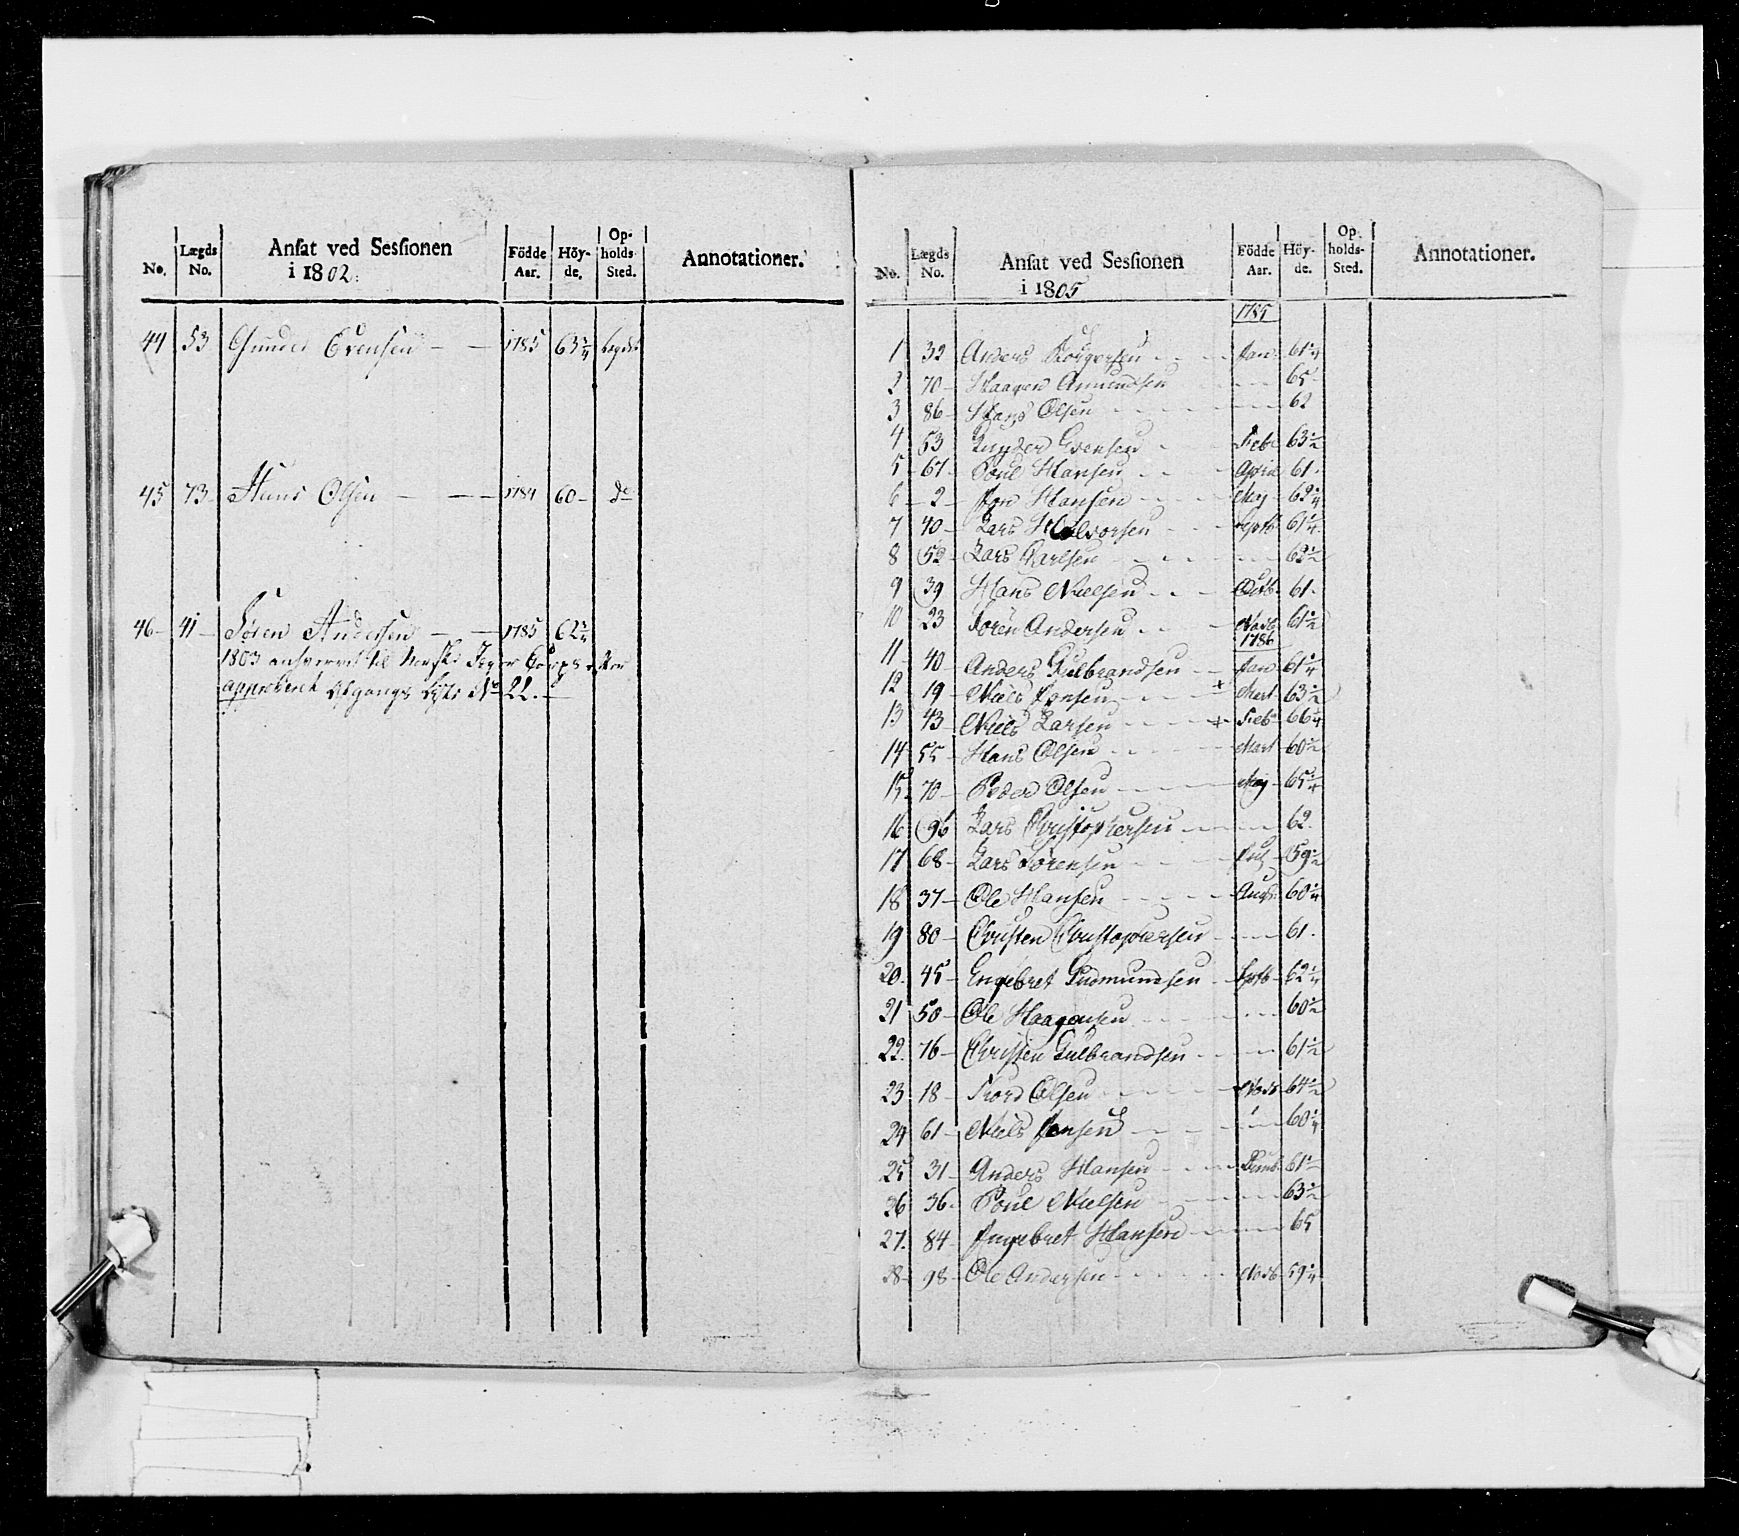 No. Lægds No. Ansat ved Sessionen i 1802. Födde Aar. Höyde. Opholds-Sted. Annotationer.
44 53 Gunder Evensen 1785 63¾ Legdet
45 73 Hans Olsen 1784 60 do
46 41 Sören Andersen 1785 62¼
1803 anhvervet til Norske Jeger Corps efter
approberet Afgangs Liste No 22.
No. Lægds No. Ansat ved Sessionen i 1805 Födde Aar. Höyde. Opholds-Sted. Annotationer.
1785
1 32 Anders Torgersen Jan 61¼
2 70 Haagen Amundsen 65
3 86 Hans Olsen 62
4 53 Gunder Evensen Febr 63½
5 67 Poul Hansen April 61
6 2 Jon Hansen May 62¼
7 40 Lars Halvorsen Septb 61¼
8 52 Lars Carlsen 62½
9 39 Hans Nielsen Octb 61
10 23 Sören Andersen Novb 61½
1786
11 40 Anders Gulbrandsen Jan 61¼
12 19 Niels Jonsen + Mart 63½
13 43 Niels Larsen + Feb 66¼
14 55 Hans Olsen Mart 60½
15 70 Peder Olsen May 65¼
16 96 Lars Christophersen 62
17 68 Lars Sörensen July 59½
18 37 Ole Hansen Augs 60¼
19 80 Christen Christophersen 61
20 45 Engebret Gudmundsen Septb 62¼
21 50 Ole Haagensen 60½
22 76 Christen Gulbrandsen 61½
23 18 Thord Olsen Novb 64½
24 61 Niels Jensen 60¼
25 31 Anders Hansen Decmb 61½
26 36 Poul Nielsen 63½
27 84 Ingebret Hansen 65
28 98 Ole Andersen Novb 59¼